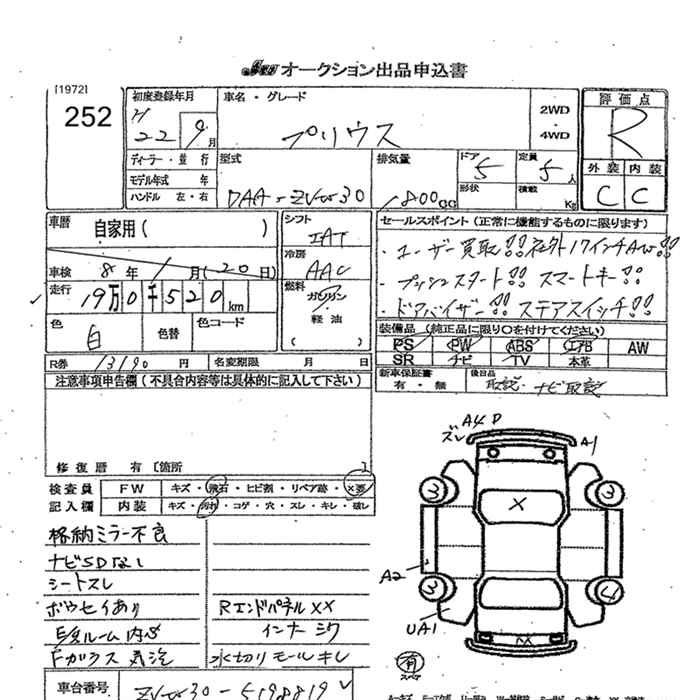 オークション出品申込書
[1972]
252
初度登録年月
H
22 9月
車名・グレード
プリウス
2WD
4WD
評価点
R
外装 内装
C C
ディーラー・並行
モデル年式 年
ハンドル 左・右
型式
DAA-ZVW30
排気量
1800cc
ドア
5
形状
定員
5人
積載
Kg
車歴
自家用( )
車検 8年 1月(20日)
走行 19万0千520km
色
白
色替
色コード
シフト
IAT
冷房
AAC
燃料
ガソリン
・
軽油
( )
セールスポイント(正常に機能するものに限ります)
・ユーザー買取!!社外17インチAW!!
・プッシュスタート!! スマートキー!!
・ドアバイザー!! ステアスイッチ!!
装備品(純正品に限り○を付けてください)
PS PW ABS エアB AW
SR ナビ TV 本革
新車保証書
有・無
後日品
取説・ナビ取説
R券 13190円
名変期限 月 日
注意事項申告欄(不具合内容等は具体的に記入して下さい)
修復歴 有[箇所 ]
検査員
記入欄
FW キズ・飛石・ヒビ割・リペア跡・×要
内装 キズ・汚れ・コゲ・穴・スレ・キレ・破し
格納ミラー不良
ナビSDなし
シートスレ
ボウセイあり
Rエンドパネル××
インナーシワ
Fガラス
水切りモールキレ
車台番号
ZVW30-5198819
ズレ
A4 P
A1
3
3
X
A2
3
4
UA1
X
有
スペア